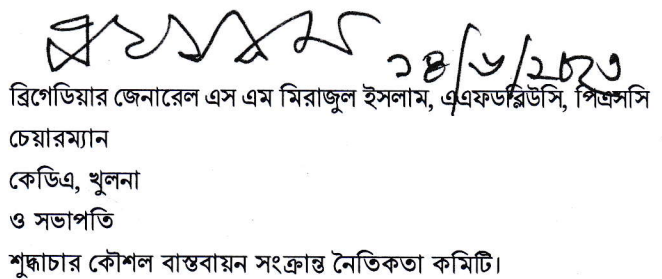 ১৪/৬/২০২৩
ব্রিগেডিয়ার জেনারেল এস এম মিরাজুল ইসলাম, এএফডব্লিউসি, পিএসসি
চেয়ারম্যান
কেডিএ, খুলনা
ও সভাপতি
শুদ্ধাচার কৌশল বাস্তবায়ন সংক্রান্ত নৈতিকতা কমিটি।